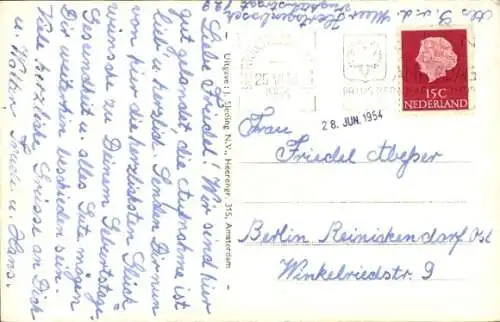 Liebe Friedel! Wir sind hier
gut gelandet, die Aufnahme ist
lieb u. herzlich. Senden Dir nun
von hier die herzlichsten Glück-
wünsche zu Deinem Geburtstage.
Gesundheit u. alles Gute mögen
Dir weiterhin beschieden sein.
Viele herzliche Grüsse an Dich
u. Walter, Trude u. Hans.
- Uitgave: J. Sleding N.V., Heerengr. 315, Amsterdam -
28. JUN. 1954
15C
NEDERLAND
Frau
Friedel
Berlin Reinickendorf Ost
Winkelriedstr. 9